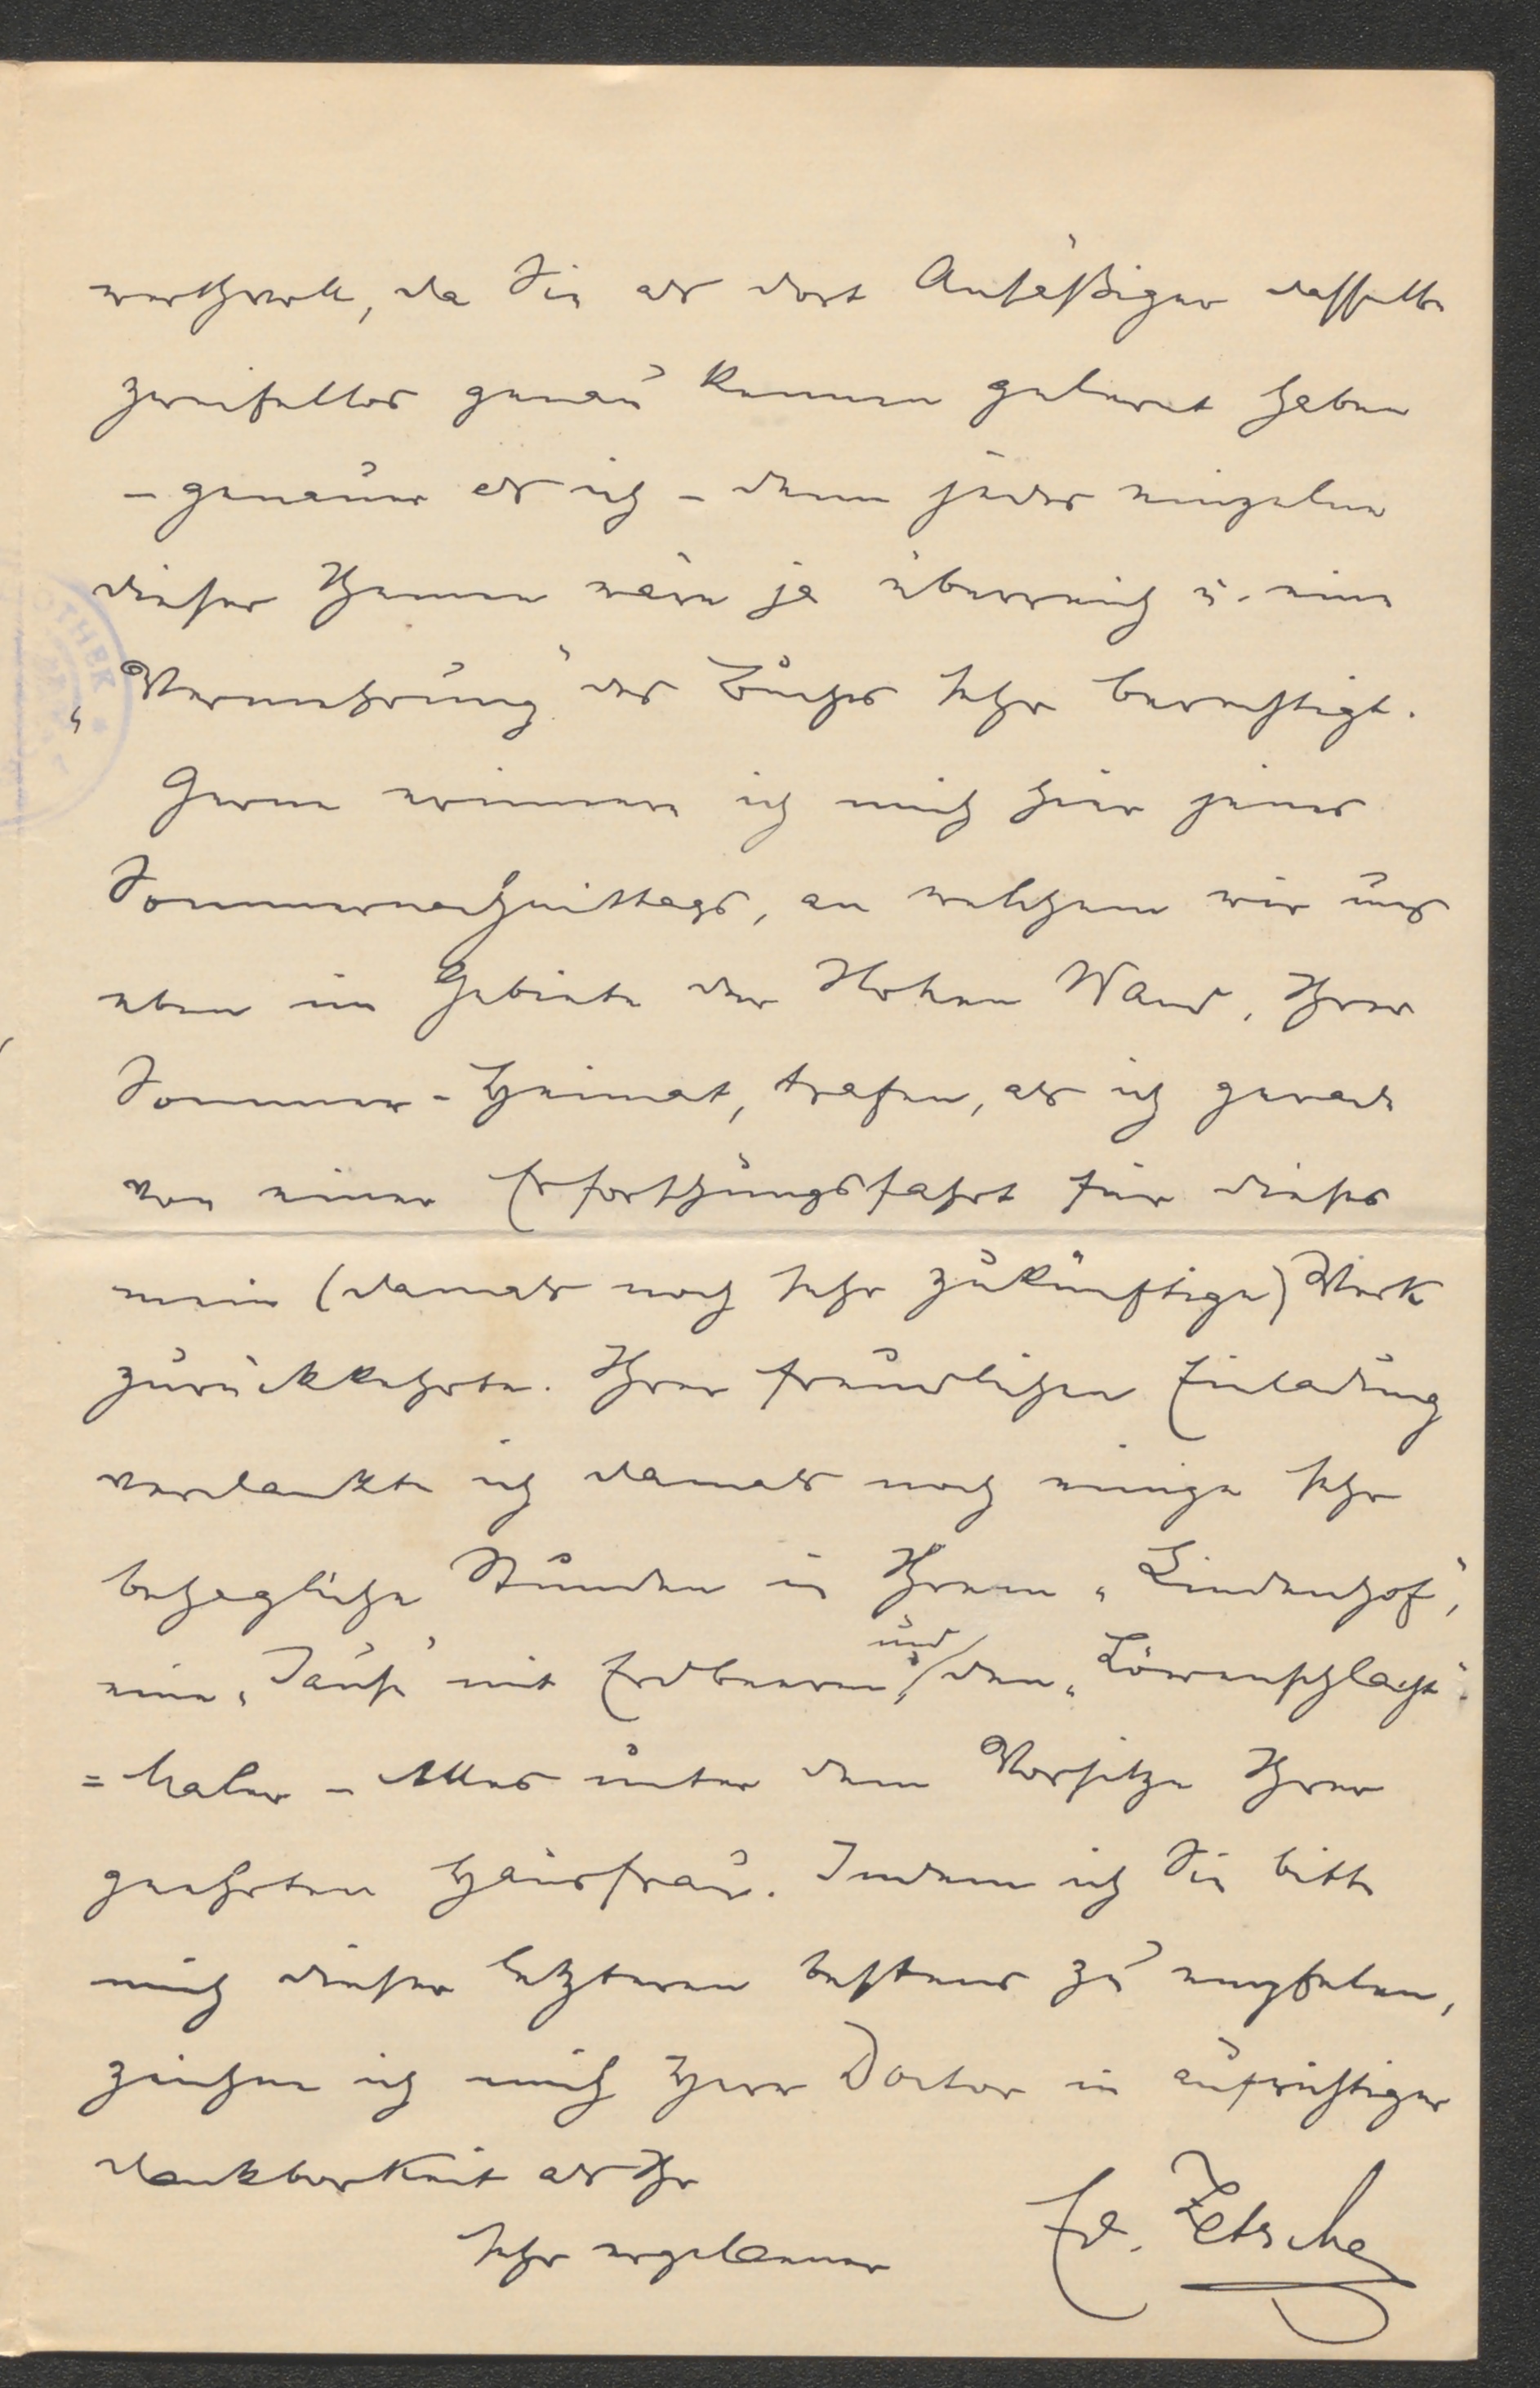 werthvoll, da Sie als dort Ansäßiger dasselbe
zweifellos genau kennen gelernt haben
– genauer als ich – denn jedes einzelne
dieser Themen wäre ja überreich u. eine
„Vermehrung" des Buches sehr berechtigt.
Gerne erinnere ich mich hier jenes
Sommernachmittags, an welchem wir uns
eben im Gebiete der Hohen Wand, Ihrer
Sommer-Heimat, trafen, als ich gerade
von einer Erforschungsfahrt für dieses
mein (damals noch sehr zukünftige) Werk
zurückkehrte. Ihrer freundlichen Einladung
verdankte ich damals noch einige sehr
behagliche Stunden in Ihrem „Lindenhof",
eine „Jause" mit Erdbeeren, und den „Löwenschlacht"
=Maler – Alles unter dem Vorsitze Ihrer
geehrten Hausfrau. Indem ich Sie bitte
mich dieser letzteren bestens zu empfelen,
zeichne ich mich Herr Doctor in aufrichtiger
Dankbarkeit als Ihr
sehr ergebener Ed. Zetsche
OTHEK